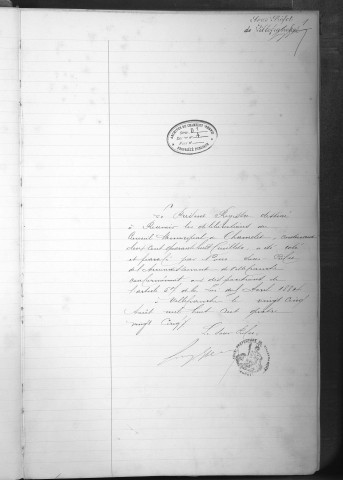 Sous Préfet
de Villefranche
Le Présent Registre destiné
à Recevoir les délibérations du
Conseil Municipal de Chamelet contenant
deux cent quarante huit feuillets a été coté
et paraphé par Nous Sous Préfet
de l'arrondissement de Villefranche
conformément aux prescriptions de
l'article 57 de la Loi du 5 Avril 1884
à Villefranche le vingt cinq
Août mil huit cent quatre
vingt cinq
Le Sous Préfet